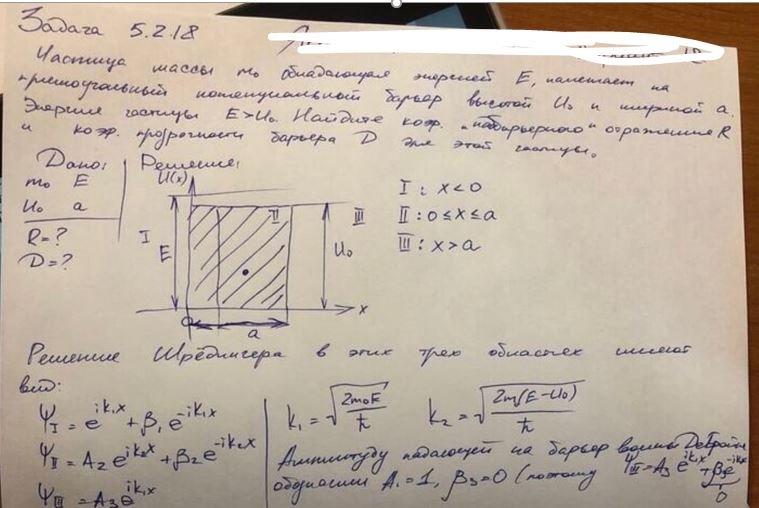 Задача 5.2.18
Частица массы m₀ обладающая энергией E, налетает на
прямоугольный потенциальный барьер высотой U₀ и шириной a.
Энергия частицы E>U₀. Найдите коэф. "надбарьерного" отражения R
и коэф. прозрачности барьера D для этой частицы.
Дано: Решение:
m₀ E
U₀ a
R=?
D=?
U(x)
I E II U₀ III
0 a x
I : x<0
II : 0≤x≤a
III : x>a
Решение Шрёдингера в этих трех областях имеют
вид:
Ψ_I = e^{ik₁x} + β₁e^{-ik₁x}
Ψ_II = A₂e^{ik₂x} + β₂e^{-ik₂x}
Ψ_III = A₃e^{ik₁x}
k₁ = √(2m₀E/ħ) k₂ = √(2m(E-U₀)/ħ)
Амплитуду падающей на барьер волны Де Бройля
обозначим A₁=1, β₃=0 (поэтому Ψ_III=A₃e^{ik₁x}+β₃e^{-ik₁x}
0